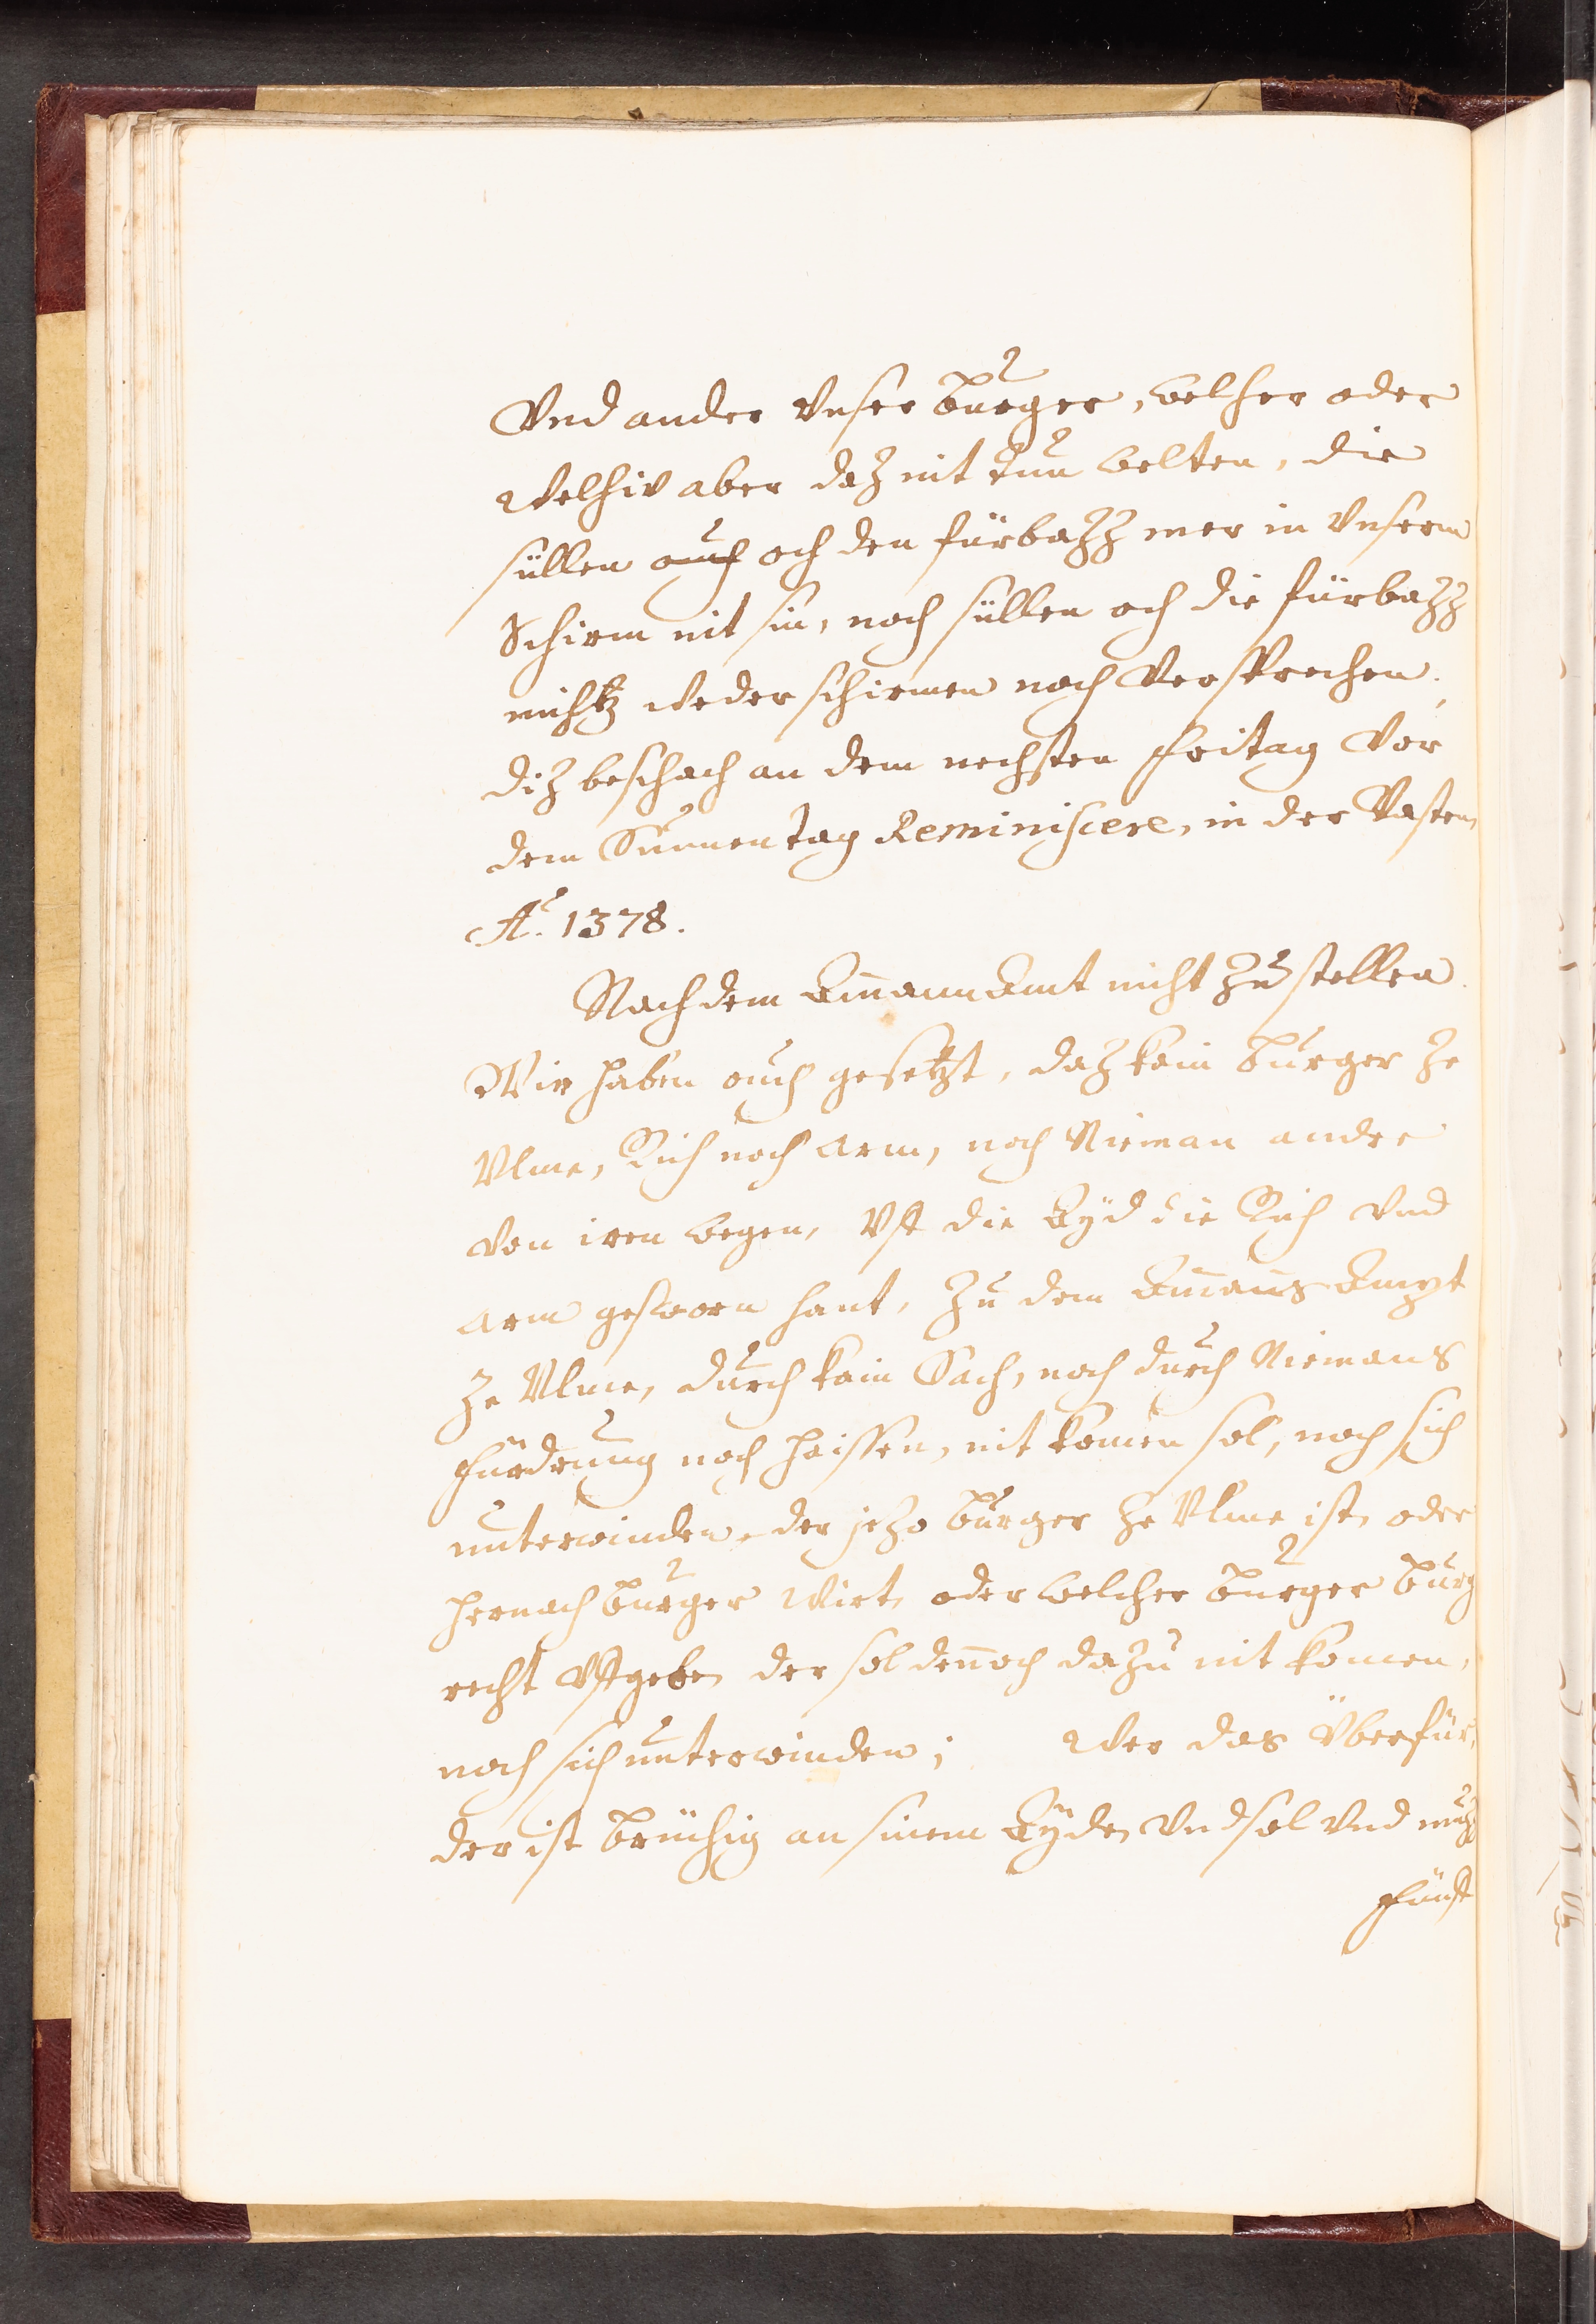 Vnd ander Vnser burger, welher oder
Welhiv aber daz nit tun welten, die
süllen auch och den fürbazz mer in Vnserm
Schirm nit sin, noch süllen och die fürbazz
nichtz weder schirmen noch Versprechen.
diz beschach an dem nechsten Fritag Vor
dem Sunnentag Reminiscere, in der Vasten
Aº. 1378.
Nach dem Amann Amt nicht zu stellen.
Wir haben auch gesetzt, daz kain burger ze
Vlme, Rich noch Arm, noch Nieman ander
von iren wegen, Vff die Eÿd die Rich vnd
Arm gesworn hant, zu dem Ammans Ampt
ze Vlme, durch kain Sach, noch durch Niemans
Fürdrung noch haissen, nit komen sol, noch sich
unterwinden, der jezo burger ze Vlme ist, oder
hernach burger Wirt, oder welcher burger burg
recht Vffgebe, der sol dennoch dazu nit komen,
noch sich unterwinden; Wer das Überfür,
der ist brüchig an sinem Eÿde, Vnd sol Vnd muz
Fünff